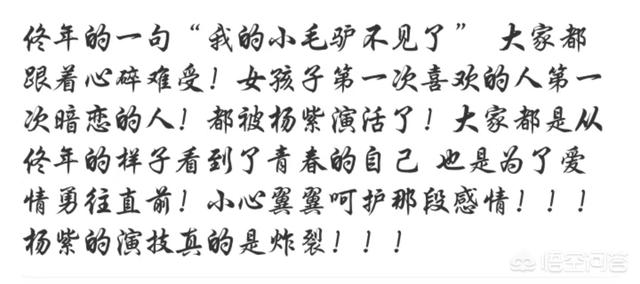 佟年的一句“我的小毛驴不见了” 大家都
跟着心碎难受！女孩子第一次喜欢的人第一
次暗恋的人！都被杨紫演活了！大家都是从
佟年的样子看到了青春的自己 也是为了爱
情勇往直前！小心翼翼呵护那段感情！！！
杨紫的演技真的是炸裂！！！
悟空问答